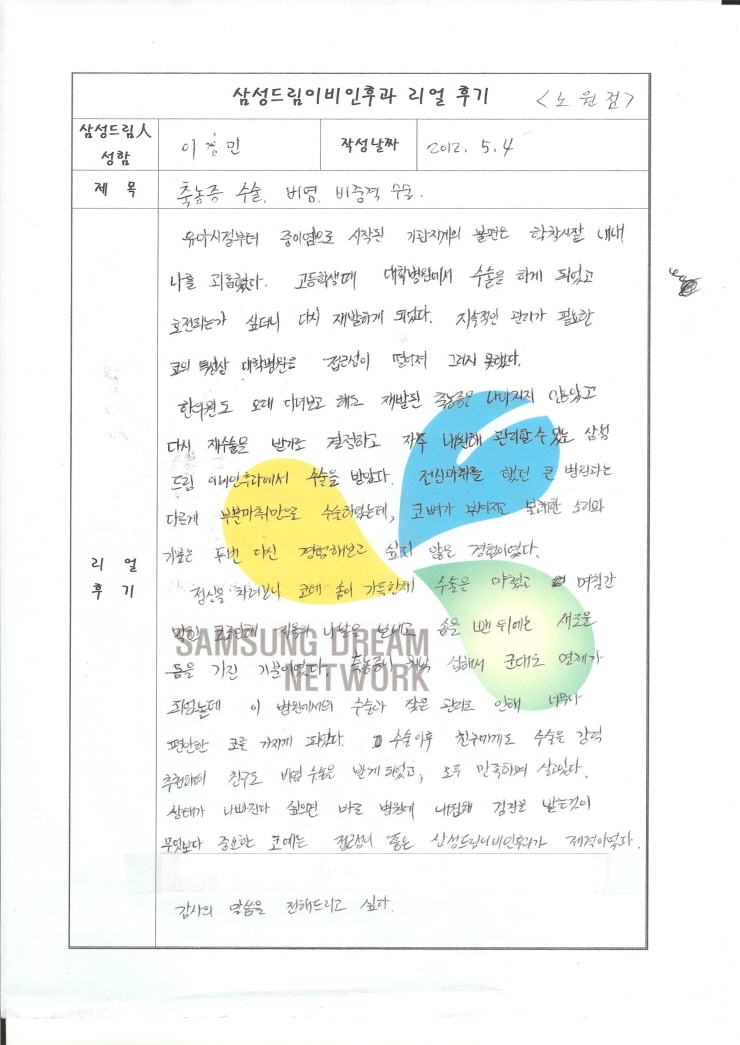 삼성드림이비인후과 리얼 후기 <노원점>
삼성드림人 성함 이 민 작성날짜 2012. 5. 4
제 목 축농증 수술, 비염, 비중격 수술.
리 얼 후 기
유아시절부터 중이염으로 시작된 기관지계의 불편은 학창시절 내내
나를 괴롭혔다. 고등학생때 대학병원에서 수술을 하게 되었고
호전되는가 싶더니 다시 재발하게 되었다. 지속적인 관리가 필요한
코의 특성상 대학병원은 접근성이 떨어져 그러지 못했다.
한의원도 오래 다녀보고 해도 재발된 축농증은 나아지지 않았고
다시 재수술을 받기로 결정하고 자주 내원해 관리할 수 있는 삼성
드림 이비인후과에서 수술을 받았다. 전신마취를 했던 큰 병원과는
다르게 부분마취만으로 수술하였는데, 코뼈가 부서지고 불쾌한 소리와
기분은 두번 다신 경험해보고 싶지 않은 경험이였다.
정신을 차려보니 코에 솜이 가득한채 수술은 마쳤고 며칠간
막힌 코로인해 지옥의 나날을 보내고 솜을 뺀 뒤에는 새로운
몸을 가진 기분이였다. 축농증이 심해서 군대도 면제가
되었는데 이 병원에서의 수술과 잦은 관리로 인해 너무나
편안한 코를 가지게 되었다. 수술이후 친구에게도 수술을 강력
추천하여 친구도 비염 수술을 받게 되었고, 모두 만족하며 살고있다.
상태가 나빠진다 싶으면 바로 병원에 내원해 검진을 받는것이
무엇보다 중요한 코에는 접근성이 좋은 삼성드림이비인후과가 제격이였다.
감사의 말씀을 전해드리고 싶다.
SAMSUNG DREAM
NETWORK